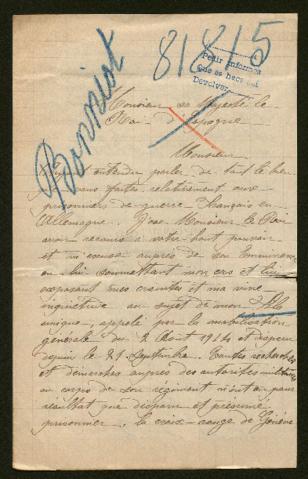 Boissiot
81815
Pedir informes
que se hace así
Devolver
Monsieur sa Majesté le
Roi d'Espagne
Monsieur
Ayant entendu parler de tout le bien
vous faites relativement aux
prisonniers de guerre français en
Allemagne. J'ose Monsieur le Roi
avoir recours à votre haut pouvoir
et m'
en lui soumettant mon cas et lui
exposant mes craintes et ma vive
inquiétude au sujet de mon fils
unique, appelé par la mobilisation
générale du 2 Août 1914 et disparu
depuis le 21 Septembre. Toutes recherches
et démarches auprès des autorités militaires
au corps de son régiment n'ont eu pour
résultat que disparu et présumé
prisonnier. la croix-rouge de Genève